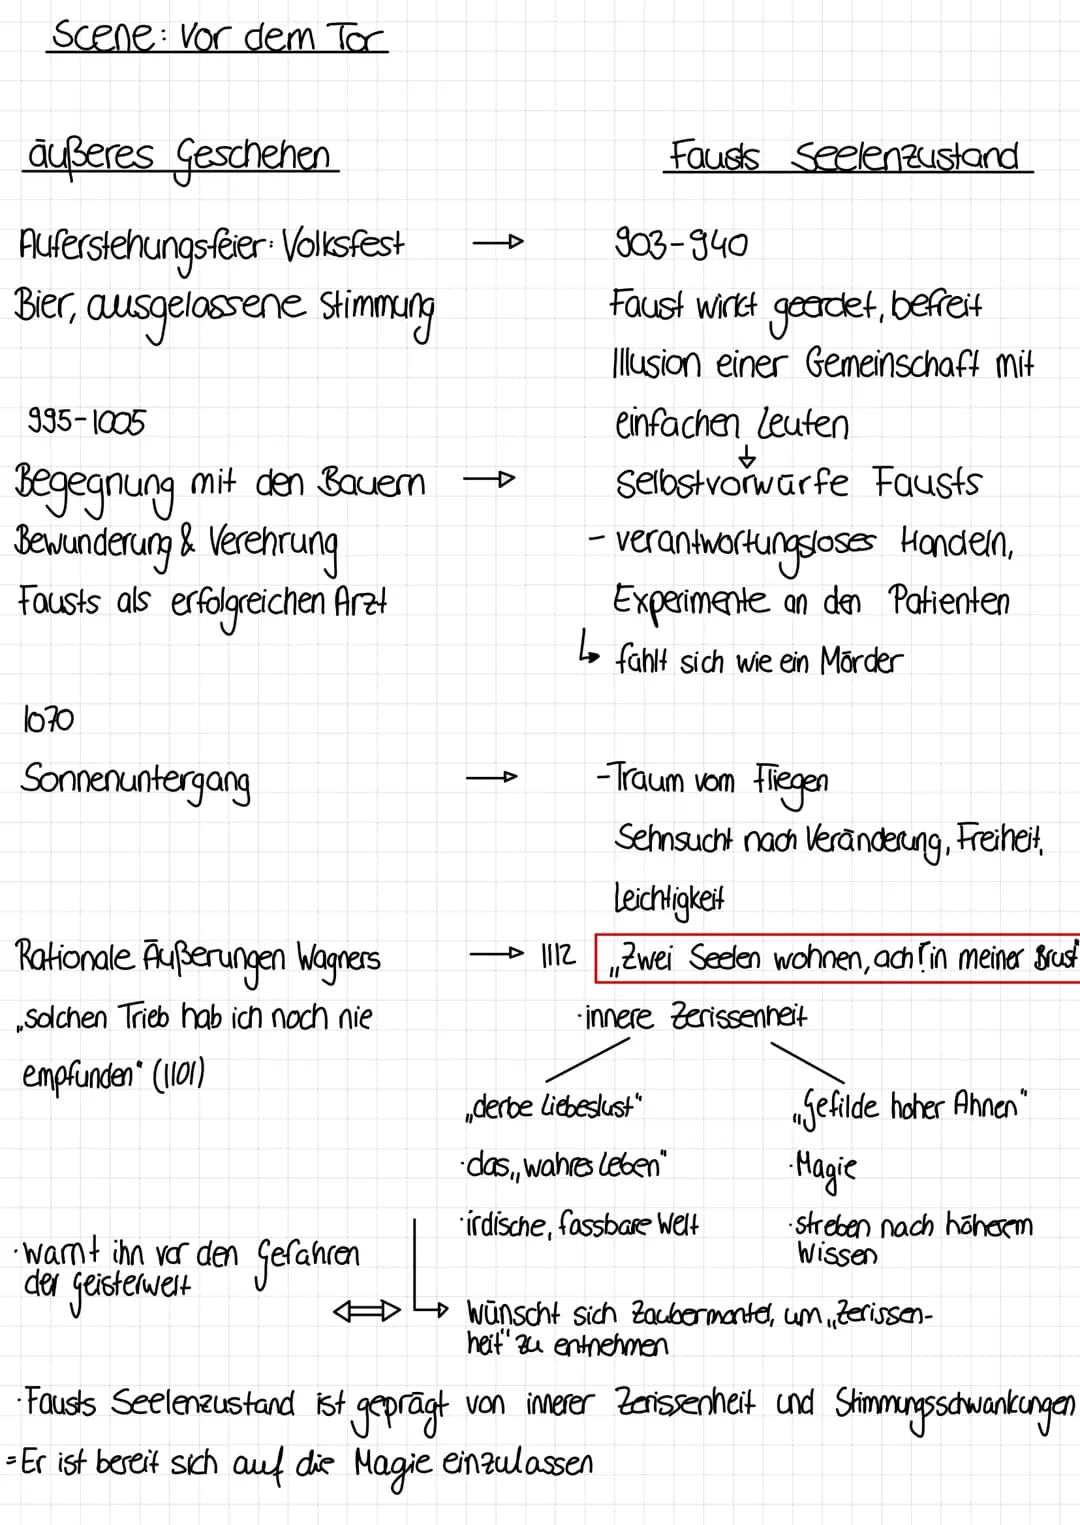 Scene: Vor dem Tor
äußeres Geschehen
Fausts Seelenzustand
Auferstehungsfeier: Volksfest → 903-940
Bier, ausgelassene Stimmung
Faust wirkt geerdet, befreit
Illusion einer Gemeinschaft mit
einfachen Leuten
↓
995-1005
Begegnung mit den Bauern → Selbstvorwürfe Fausts
Bewunderung & Verehrung
Fausts als erfolgreichen Arzt
- verantwortungsloses Handeln,
Experimente an den Patienten
↳ fühlt sich wie ein Mörder
1070
Sonnenuntergang → -Traum vom Fliegen
Sehnsucht nach Veränderung, Freiheit,
Leichtigkeit
Rationale Äußerungen Wagners → 1112 „Zwei Seelen wohnen, ach! in meiner Brust"
„solchen Trieb hab ich noch nie
empfunden" (1101)
·innere Zerissenheit
„derbe Liebeslust"
·das „wahres Leben"
·irdische, fassbare Welt
„Gefilde hoher Ahnen"
·Magie
·streben nach höherem
Wissen
·warnt ihn vor den Gefahren
der Geisterwelt
⇔ ↳ wünscht sich Zaubermantel, um „Zerissen-
heit" zu entnehmen
·Fausts Seelenzustand ist geprägt von innerer Zerissenheit und Stimmungsschwankungen
=Er ist bereit sich auf die Magie einzulassen